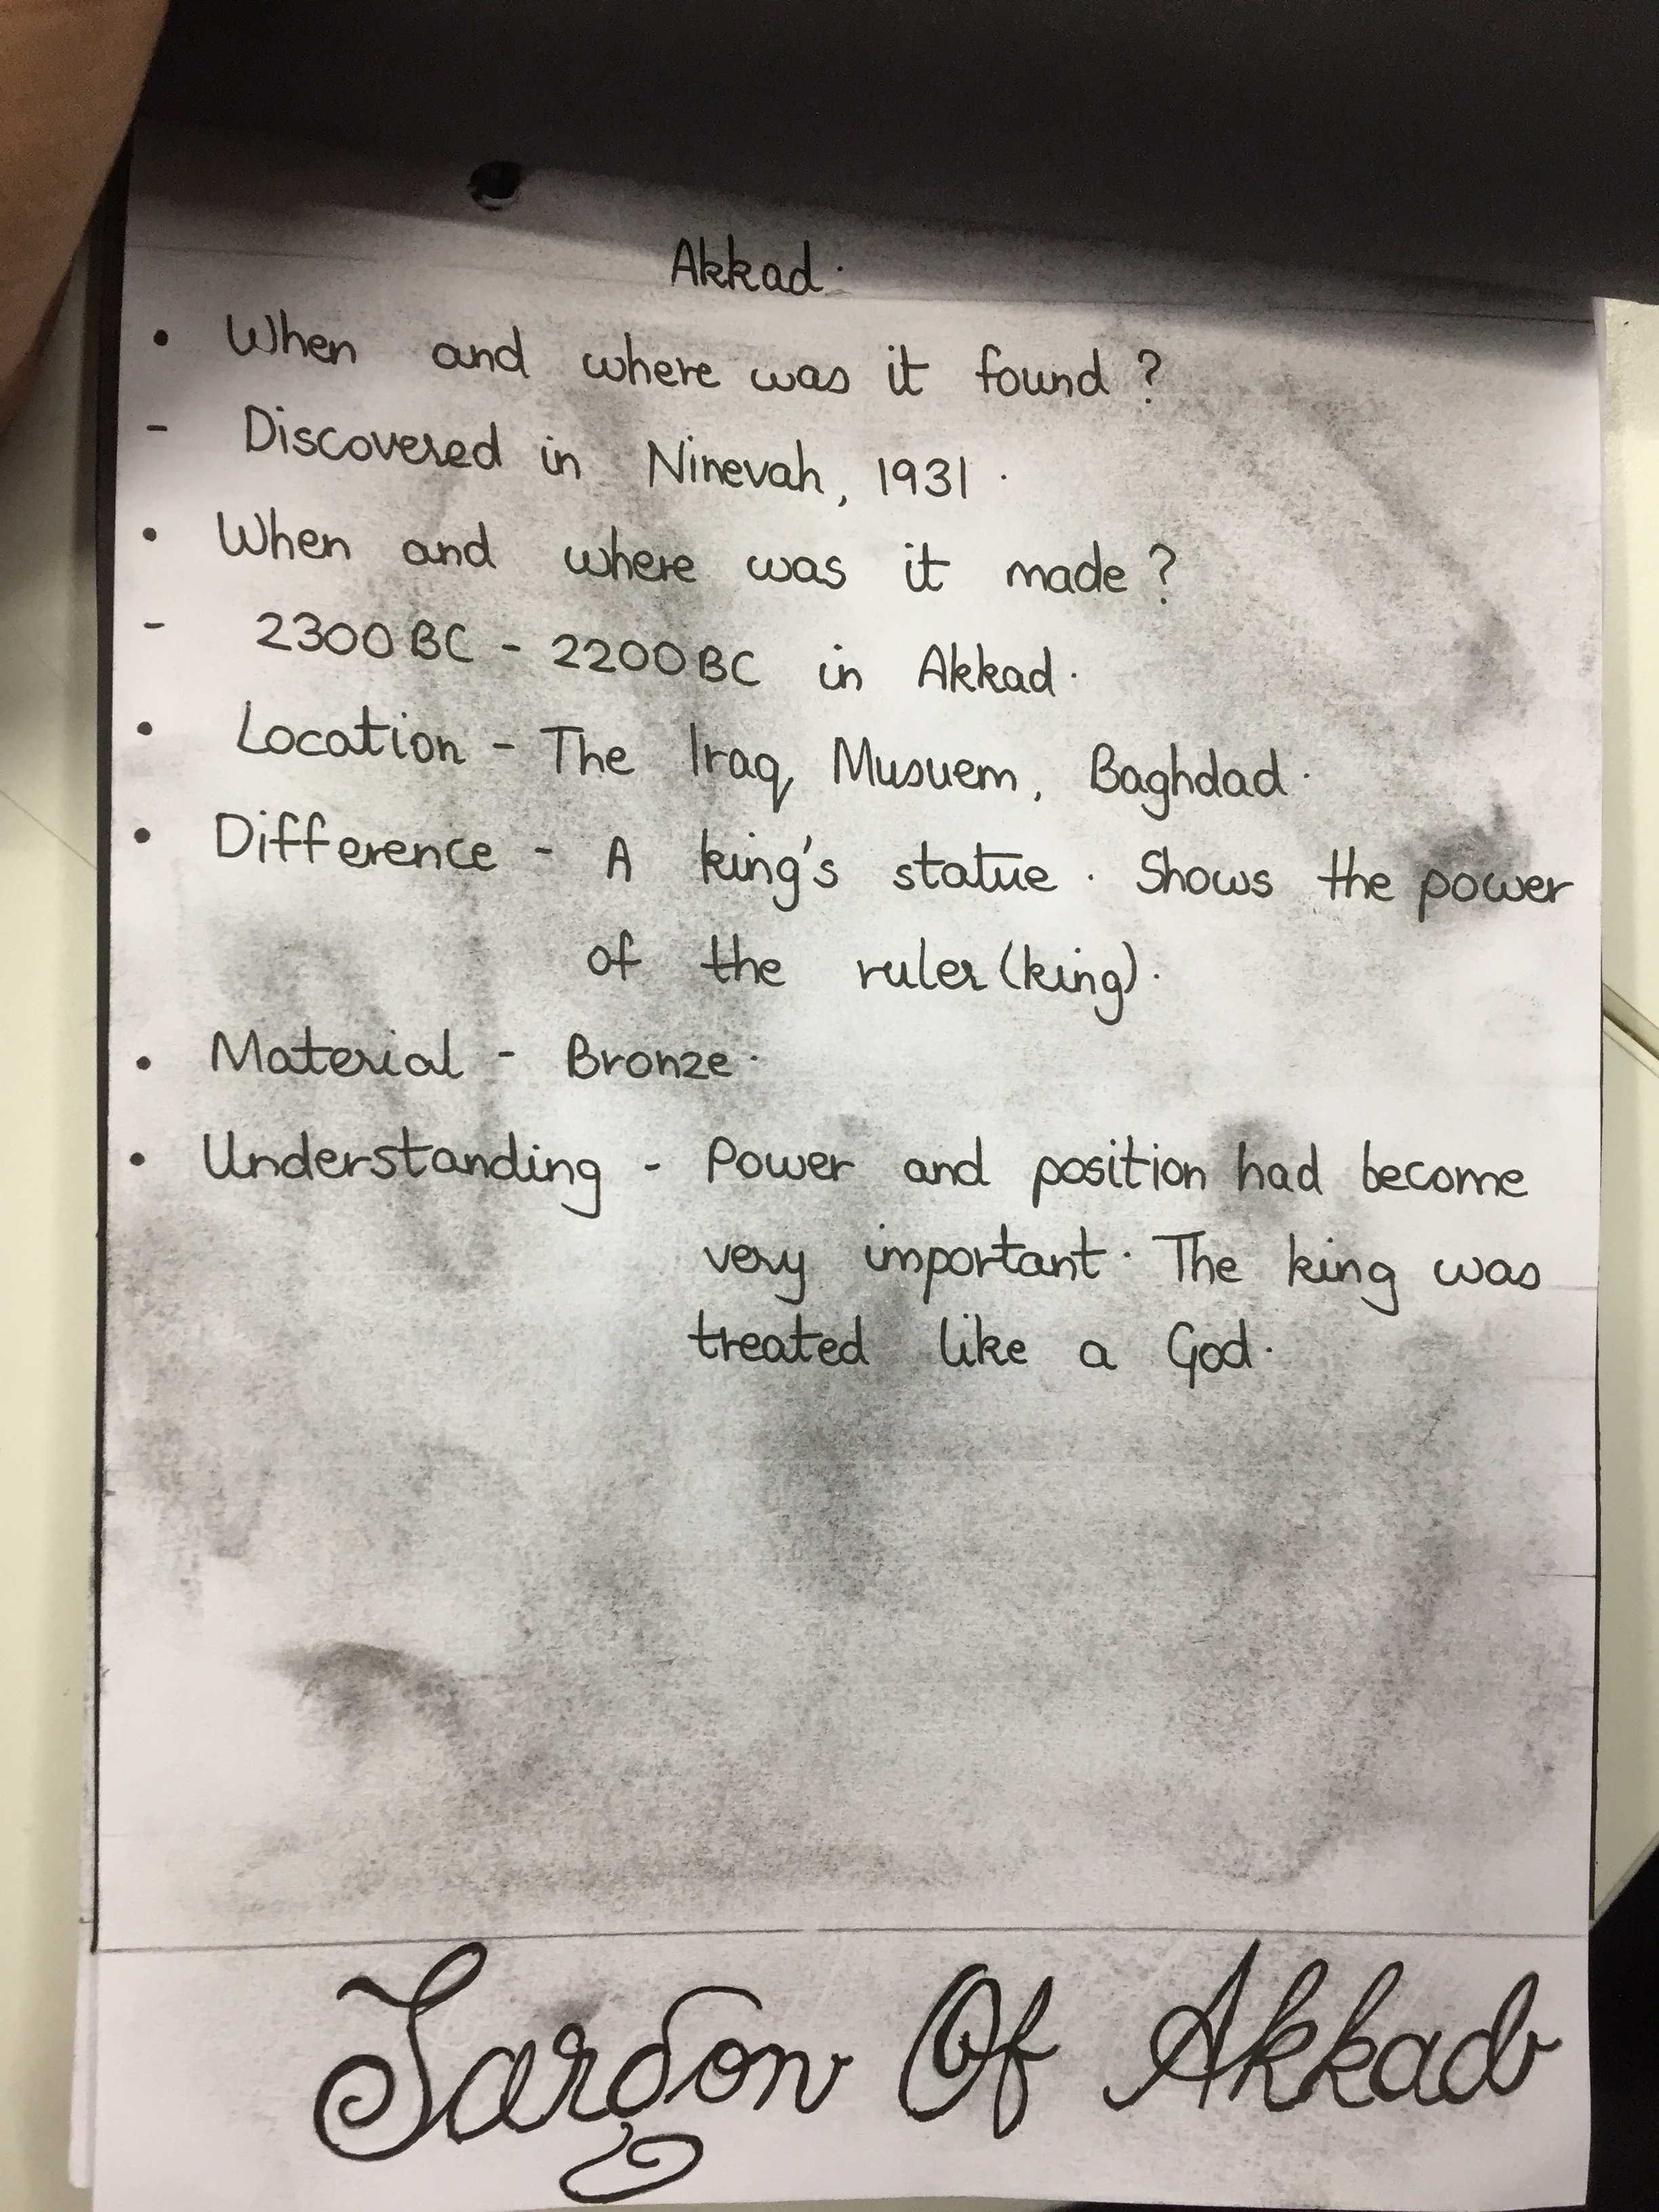 Akkad.
• When and where was it found?
- Discovered in Ninevah, 1931.
• When and where was it made?
- 2300 BC - 2200 BC in Akkad.
• Location - The Iraq Musuem, Baghdad.
• Difference - A king's statue. Shows the power
of the ruler (king).
• Material - Bronze.
• Understanding - Power and position had become
very important. The king was
treated like a God.
Sargon Of Akkad